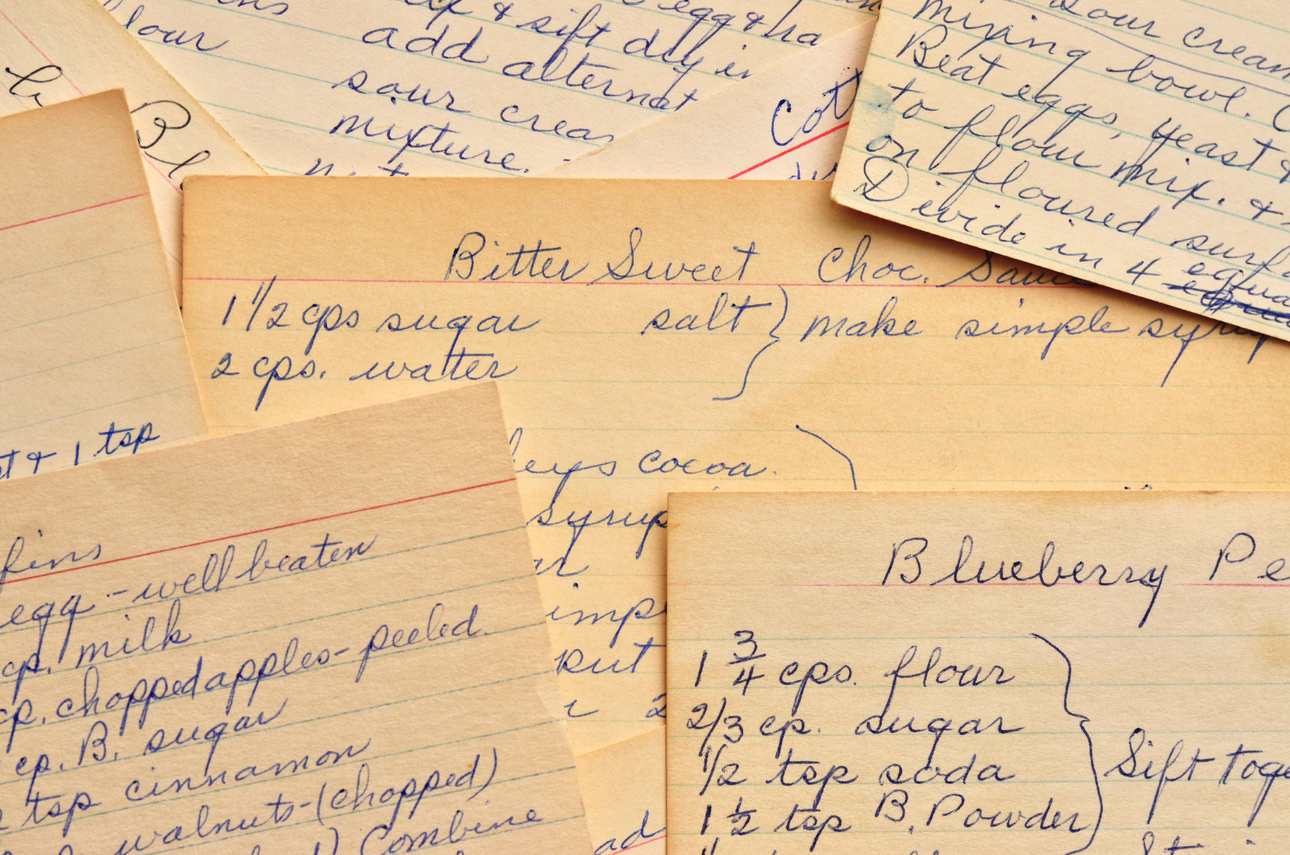 flour
& sift dry
add alternat
sour crea
mixture.
egg &
Bl
Cot
sour cream
mixing bowl.
Beat eggs, yeast &
to flour mix. &
on floured surf
Divide in 4 equa
Bitter Sweet Choc. Sauce
1 1/2 cps sugar salt } make simple syrup
2 cps. watter
t & 1 tsp
leys cocoa.
syrup
ar
imple
put
2
ad
fins
egg - well beaten
cp. milk
cp. chopped apples - peeled.
cp. B. sugar
tsp cinnamon
walnuts - (chopped)
Combine
Blueberry Pe
1 3/4 cps. flour
2/3 cp. sugar
1/2 tsp soda } Sift toge
1 1/2 tsp B. Powder